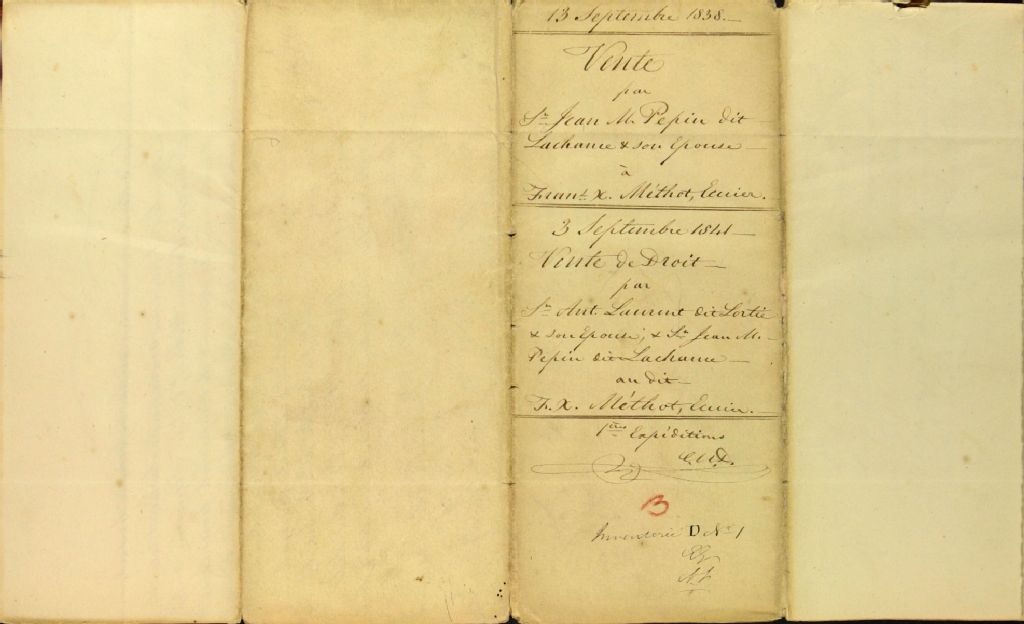 13 Septembre 1838.—
Vente
par
Sr. Jean M. Pepin dit
Lachance & son Epouse —
à
Frans. X. Méthot, Ecuier.
3 Septembre 1841 —
Vente de Droit —
par
Sr. Ant. Laurent dit Lortie
& son Epouse, & Sr. Jean M.
Pepin dit Lachance —
au dit —
F. X. Méthot, Ecuier.
1ères Expéditions
B
Inventorié D No. 1